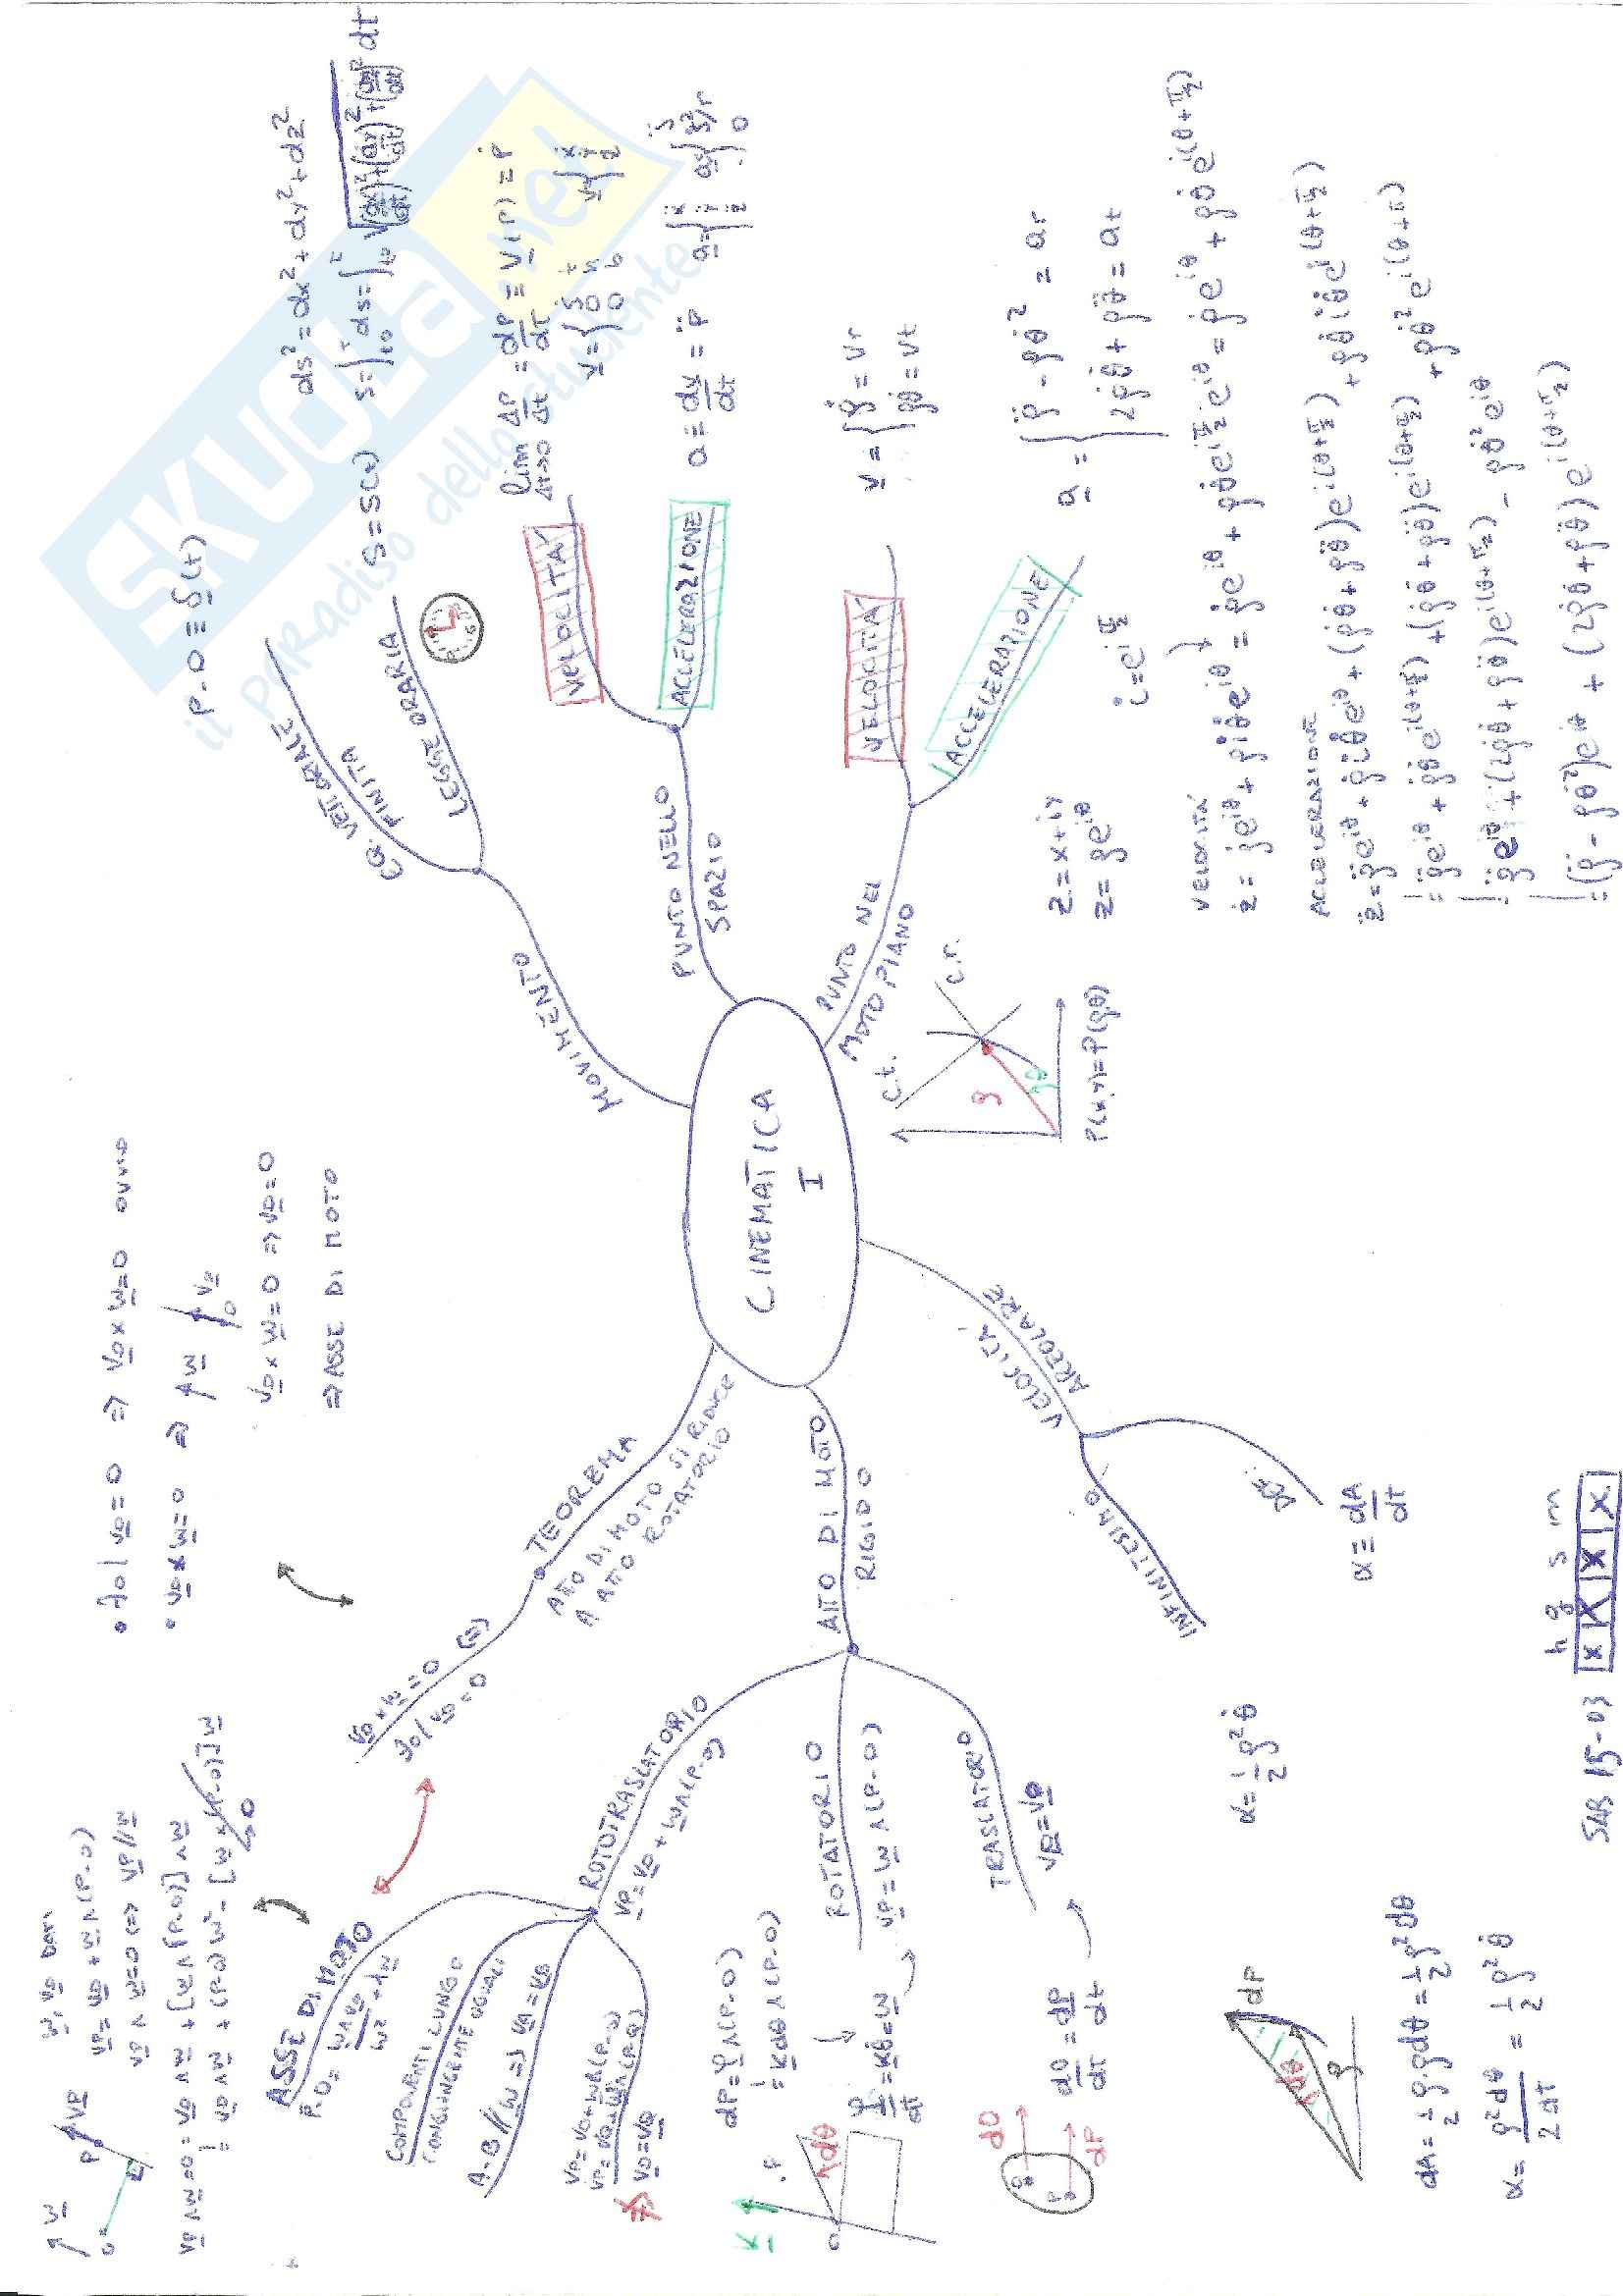 CINEMATICA
I
MOVIMENTO
EQ. VETTORIALE
FINITA
P-O ≡ f(t)
LEGGE ORARIA
S=S(t)
ds²=dx²+dy²+dz²
S=∫ₜ₀ᵗ ds=∫ₜ₀ᵗ √((dx/dt)²+(dy/dt)²+(dz/dt)²) dt
PUNTO NELLO
SPAZIO
VELOCITÀ
lim Δt→0 ΔP/Δt = dP/dt ≡ v(P) = Ṗ
v={ṡ t 0 n 0 b v={ẋ ẏ ż
ACCELERAZIONE
a = dv/dt = P̈ a={ẍ ÿ z̈ a{s̈ ṡ²/r 0
PUNTO NEL
MOTO PIANO
VELOCITÀ
v={ρ̇ = vr
ρθ̇ = vt
ACCELERAZIONE
a={ρ̈ - ρθ̇² = ar
2ρ̇θ̇ + ρθ̈ = at
c.t.
c.r.
ρ
θ
P(x,y)=P(ρ,θ)
z=x+iy
z=ρe^iθ
i=e^i π/2
VELOCITÀ
ż = ρ̇e^iθ + ρiθ̇e^iθ = ρ̇e^iθ + ρθ̇e^iπ/2 e^iθ = ρ̇e^iθ + ρθ̇e^i(θ+π/2)
ACCELERAZIONE
z̈=ρ̈e^iθ + ρ̇iθ̇e^iθ + (ρ̇θ̇ + ρθ̈)e^i(θ+π/2) + ρθ̇iθ̇e^i(θ+π/2)
= ρ̈e^iθ + ρ̇θ̇e^i(θ+π/2) + (ρ̇θ̇ + ρθ̈)e^i(θ+π/2) + ρθ̇²e^i(θ+π)
= ρ̈e^iθ + (2ρ̇θ̇ + ρθ̈)e^i(θ+π/2) - ρθ̇²e^iθ
= (ρ̈ - ρθ̇²)e^iθ + (2ρ̇θ̇ + ρθ̈)e^i(θ+π/2)
VELOCITÀ
AREOLARE
DEF.
α≡dA/dt
INFINITESIMO
α=½ρ²θ̇
dP
dθ
ρ
dA=½ρ·ρdθ=½ρ²dθ
α=ρ²dθ/2dt=½ρ²θ̇
ATTO DI MOTO
RIGIDO
TRASLATORIO
vP=vO
dO/dt=dP/dt
dO
dP
ROTATORIO
vP=w∧(P-O)
dP=φ∧(P-O)
=kdθ∧(P-O)
φ/dt=kθ̇=w
k
dθ
P
O
ROTOTRASLATORIO
vP=vO+w∧(P-O)
ASSE DI MOTO
P-O= w∧vO/w² + λw
COMPONENTI LUNGO
CONGIUNGENTE UGUALI
A-B//w=> vA=vB
vP=vO+w∧(P-O)
vP=vQ+w∧(P-Q)
vO=vQ
w
vP
P
O
w, vO DATI
vP=vO+w∧(P-O)
vP∧w=0<=>vP//w
vP∧w=0=vO∧w+[w∧(P-O)]∧w
=vO∧w+(P-O)w²-[w×(P-O)]w
0
TEOREMA
ATTO DI MOTO SI RIDUCE
A ATTO ROTATORIO
vO×w=0 <=>
∃O|vO=0
• ∃O|vO=0 => vO×w=0 OVVIO
• vO×w=0 => w vO
0
vO×w=0 => vO=0
=>ASSE DI MOTO
h g s m
x x x x
SAB 15-03
SKUOLA.net
il paradiso dello studente